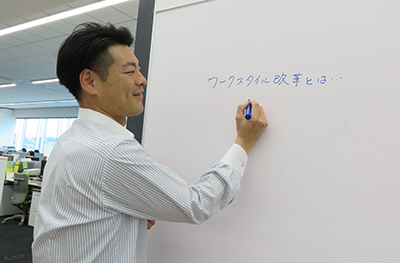 ワークスタイル改革とは・・・・